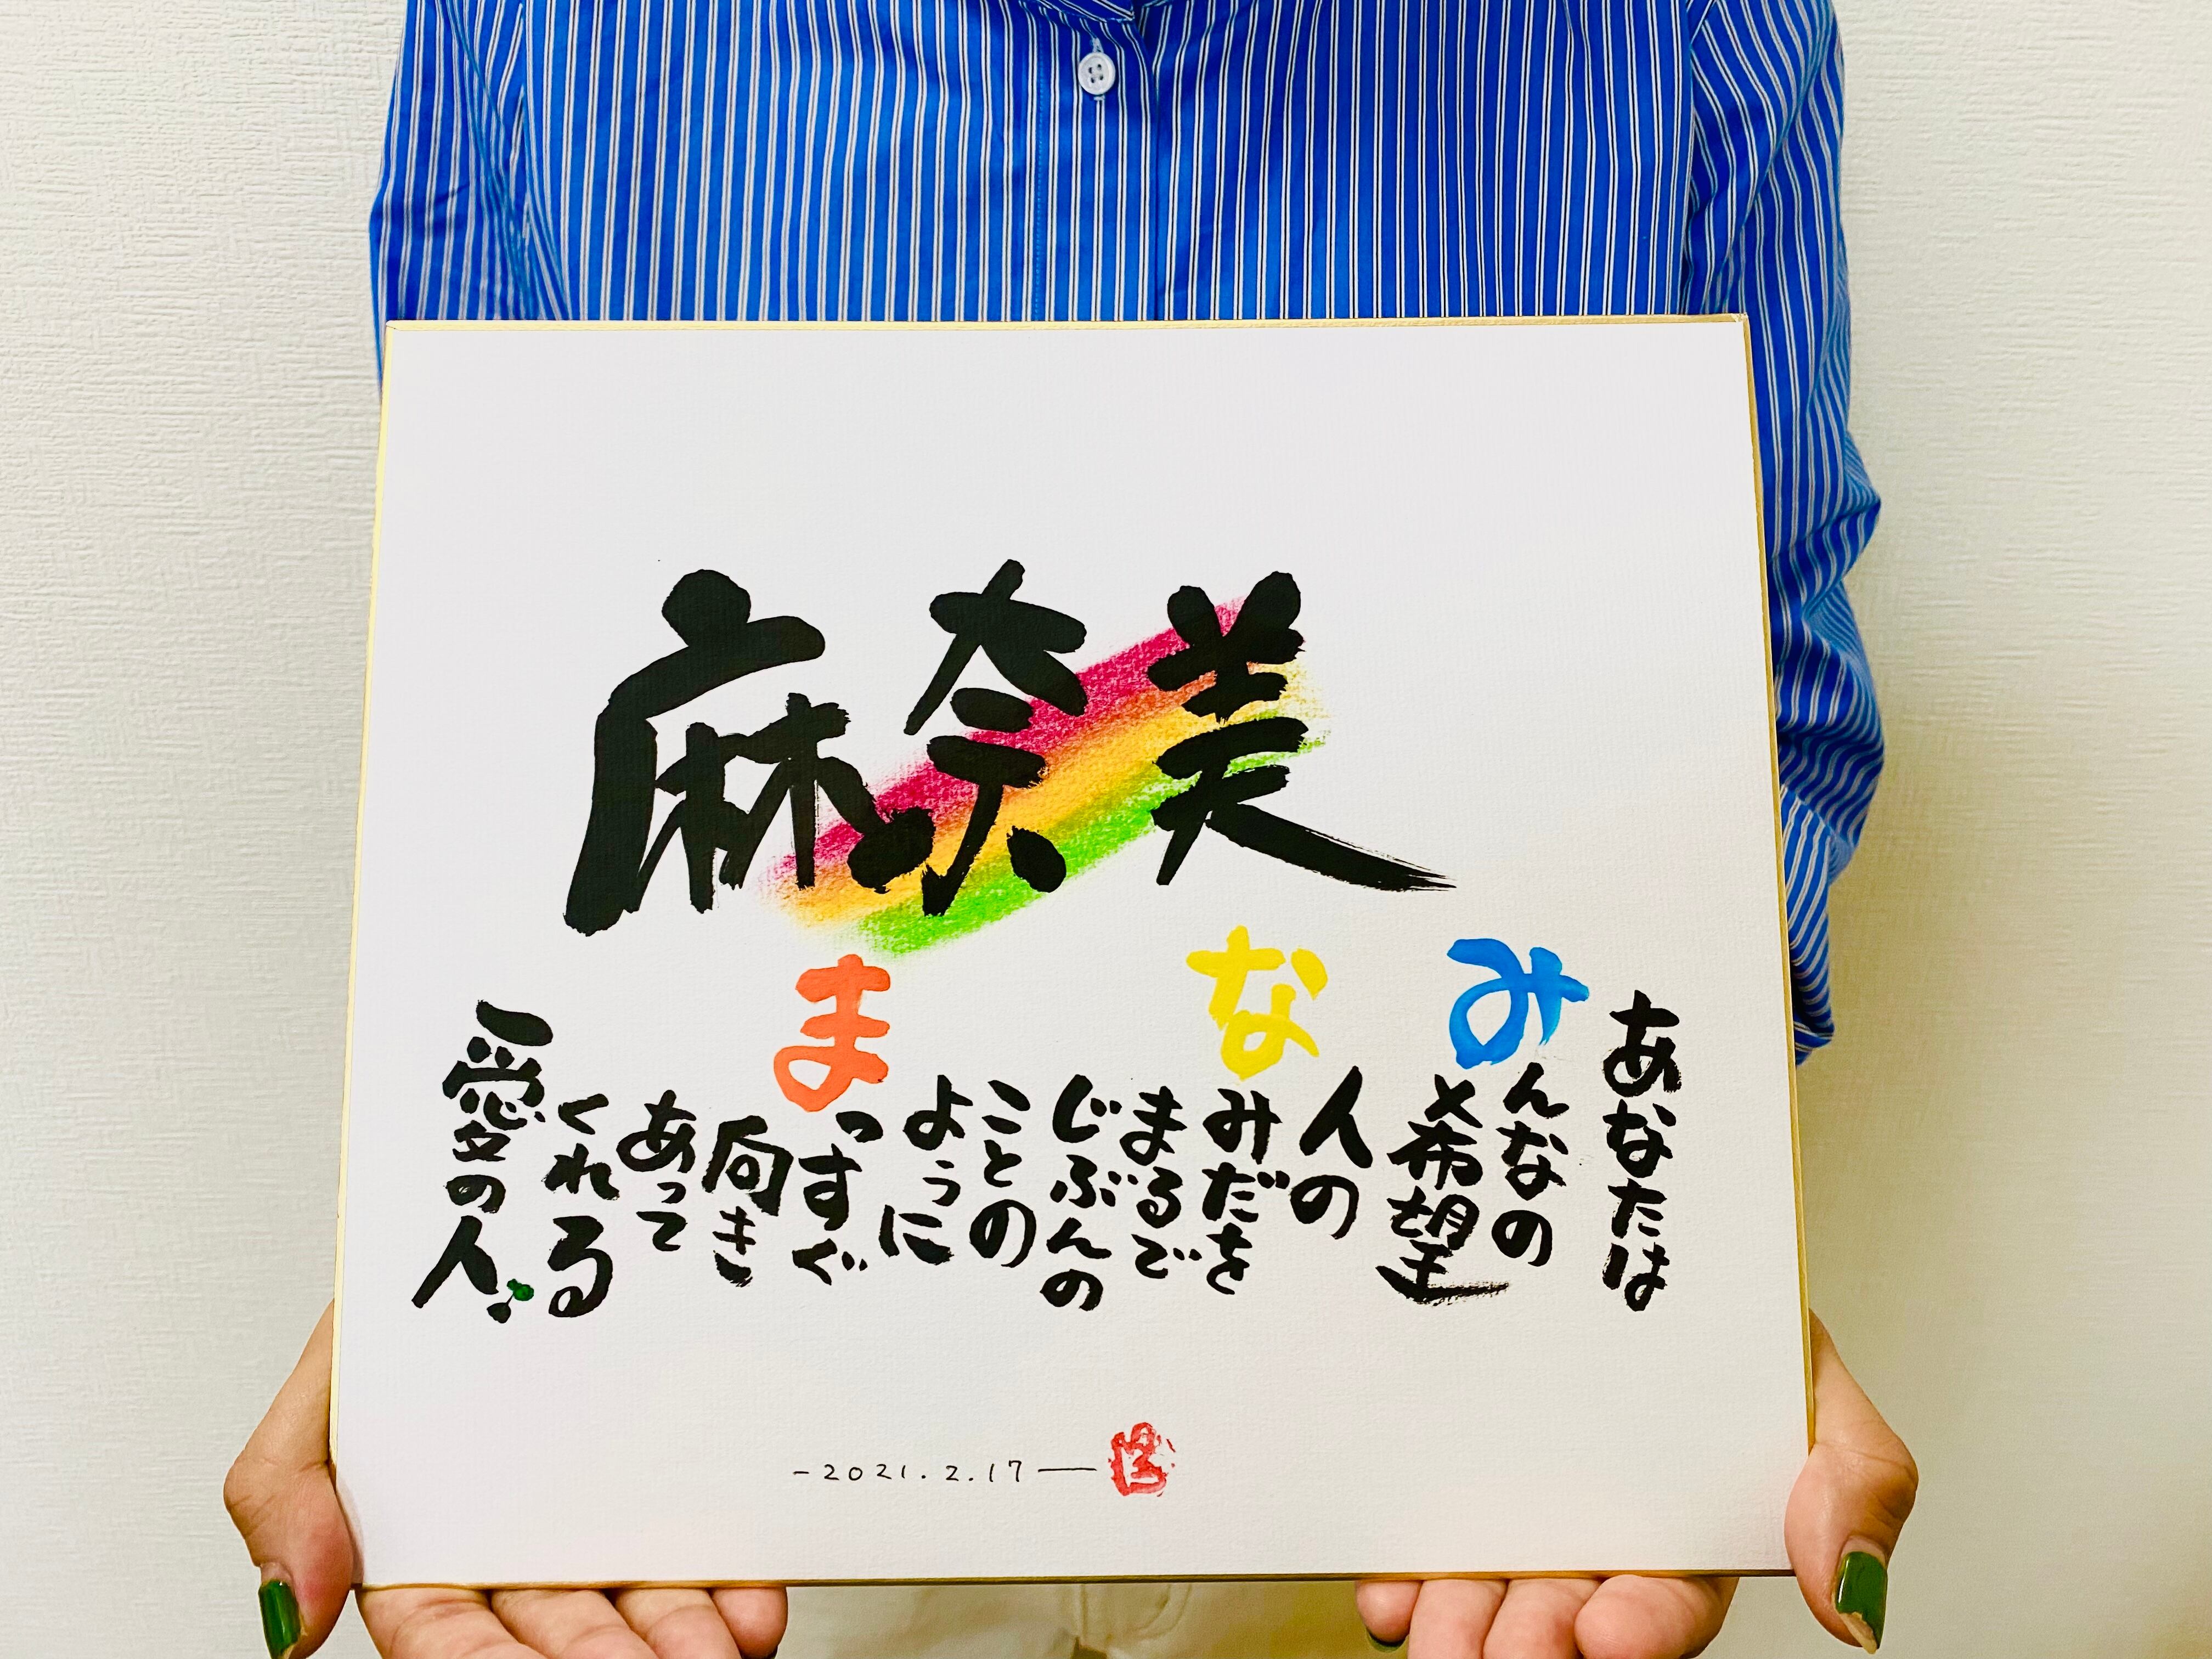 麻奈美
あなたは
みんなの
希望
人の
なみだを
まるで
じぶんの
ことの
ように
まっすぐ
向き
あって
くれる
愛の人。
-2021.2.17-